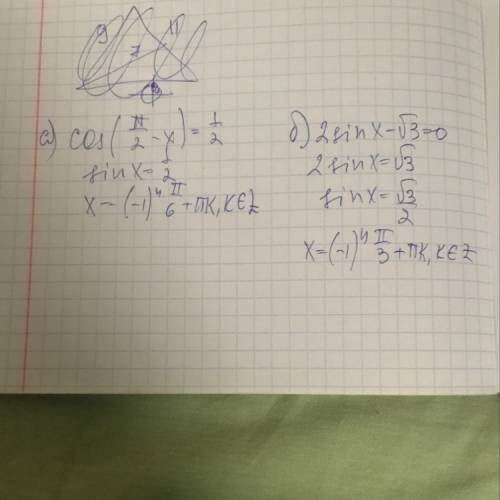 а) cos(π/2 - x) = 1/2
sin x = 1/2
x = (-1)^4 π/6 + πk, k ∈ Z
б) 2 sin x - √3 = 0
2 sin x = √3
sin x = √3/2
x = (-1)^4 π/3 + πk, k ∈ Z